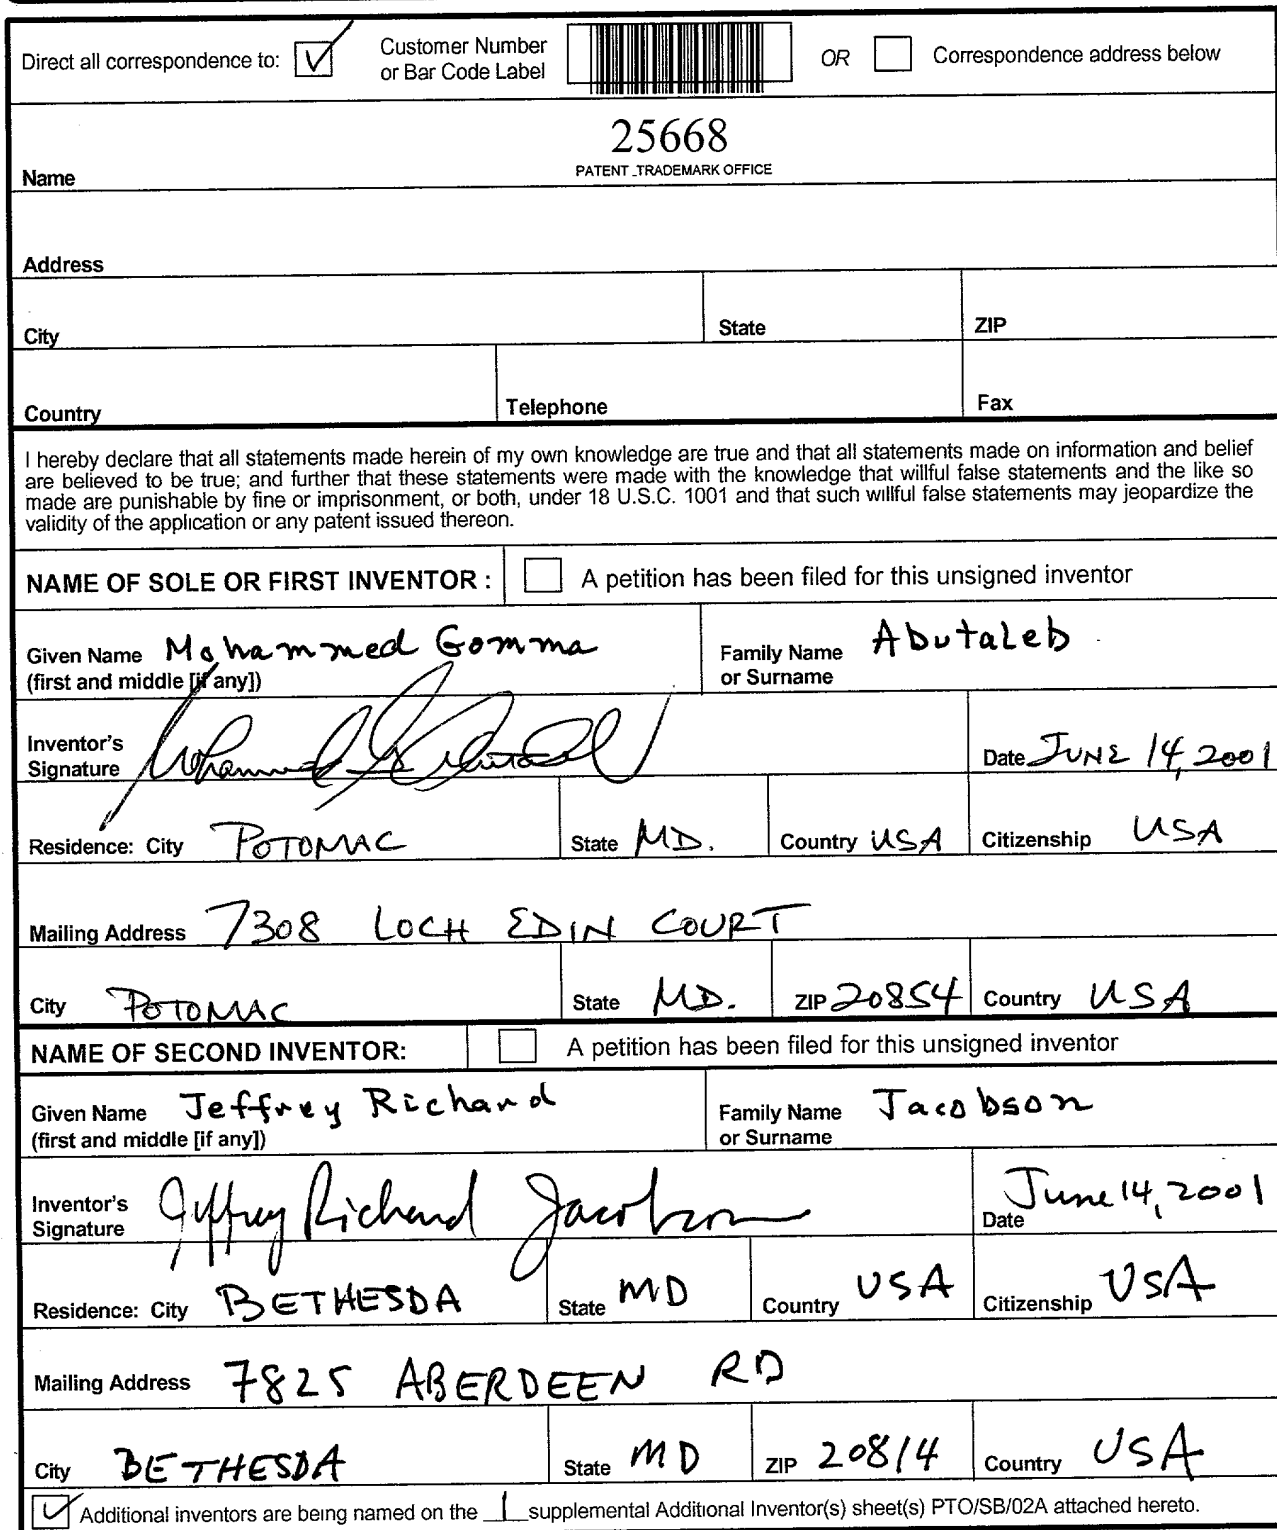 Direct all correspondence to: Customer Number or Bar Code Label OR Correspondence address below
25668
PATENT_TRADEMARK OFFICE
Name
Address
City State ZIP
Country Telephone Fax
I hereby declare that all statements made herein of my own knowledge are true and that all statements made on information and belief
are believed to be true; and further that these statements were made with the knowledge that willful false statements and the like so
made are punishable by fine or imprisonment, or both, under 18 U.S.C. 1001 and that such willful false statements may jeopardize the
validity of the application or any patent issued thereon.
NAME OF SOLE OR FIRST INVENTOR : A petition has been filed for this unsigned inventor
Given Name Mohammed Gomma Family Name Abutaleb
(first and middle [if any]) or Surname
Inventor's
Signature Mohammed G. Abutaleb Date JUNE 14, 2001
Residence: City POTOMAC State MD. Country USA Citizenship USA
Mailing Address 7308 LOCH EDIN COURT
City POTOMAC State MD. ZIP 20854 Country USA
NAME OF SECOND INVENTOR: A petition has been filed for this unsigned inventor
Given Name Jeffrey Richard Family Name Jacobson
(first and middle [if any]) or Surname
Inventor's
Signature Jeffrey Richard Jacobson Date June 14, 2001
Residence: City BETHESDA State MD Country USA Citizenship USA
Mailing Address 7825 ABERDEEN RD
City BETHESDA State MD ZIP 20814 Country USA
Additional inventors are being named on the 1 supplemental Additional Inventor(s) sheet(s) PTO/SB/02A attached hereto.